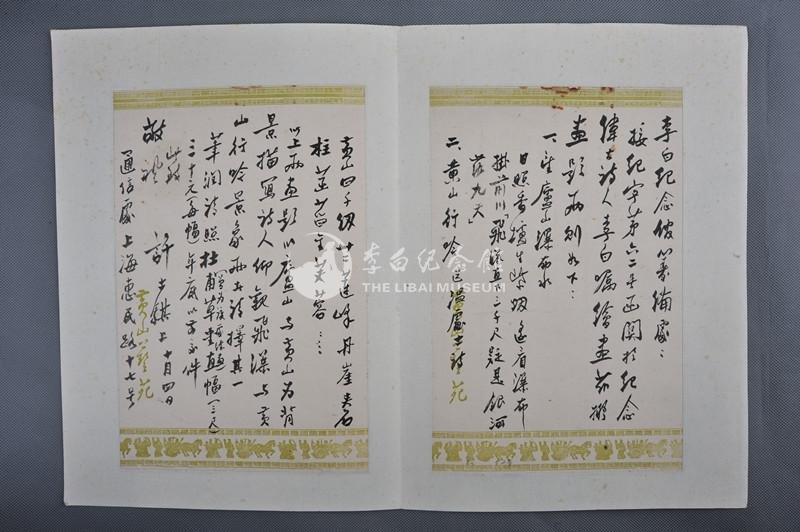 李白纪念馆筹备处：
接纪字第六二号函关于纪念
伟大诗人李白嘱绘画兹拟
画题两则如下：
一、望庐山瀑布水
日照香炉生紫烟遥看瀑布
掛前川「飞流直下三千尺疑是银河
落九天」
二、黄山行吟 温处士诗
黄山四千仞卅二莲峰丹崖夹石
柱菡萏金芙蓉……
以上两画题以庐山与黄山为背
景描写诗人仰观飞瀑与黄
山行吟景象两者请择其一
笔润请照杜甫草堂直幅（三尺）
三十元每幅年底以前交件
此致
敬礼 许士骐上 十月四日
通信处上海惠民路十七号
黄山艺苑
李白纪念馆
THE LIBAI MUSEUM